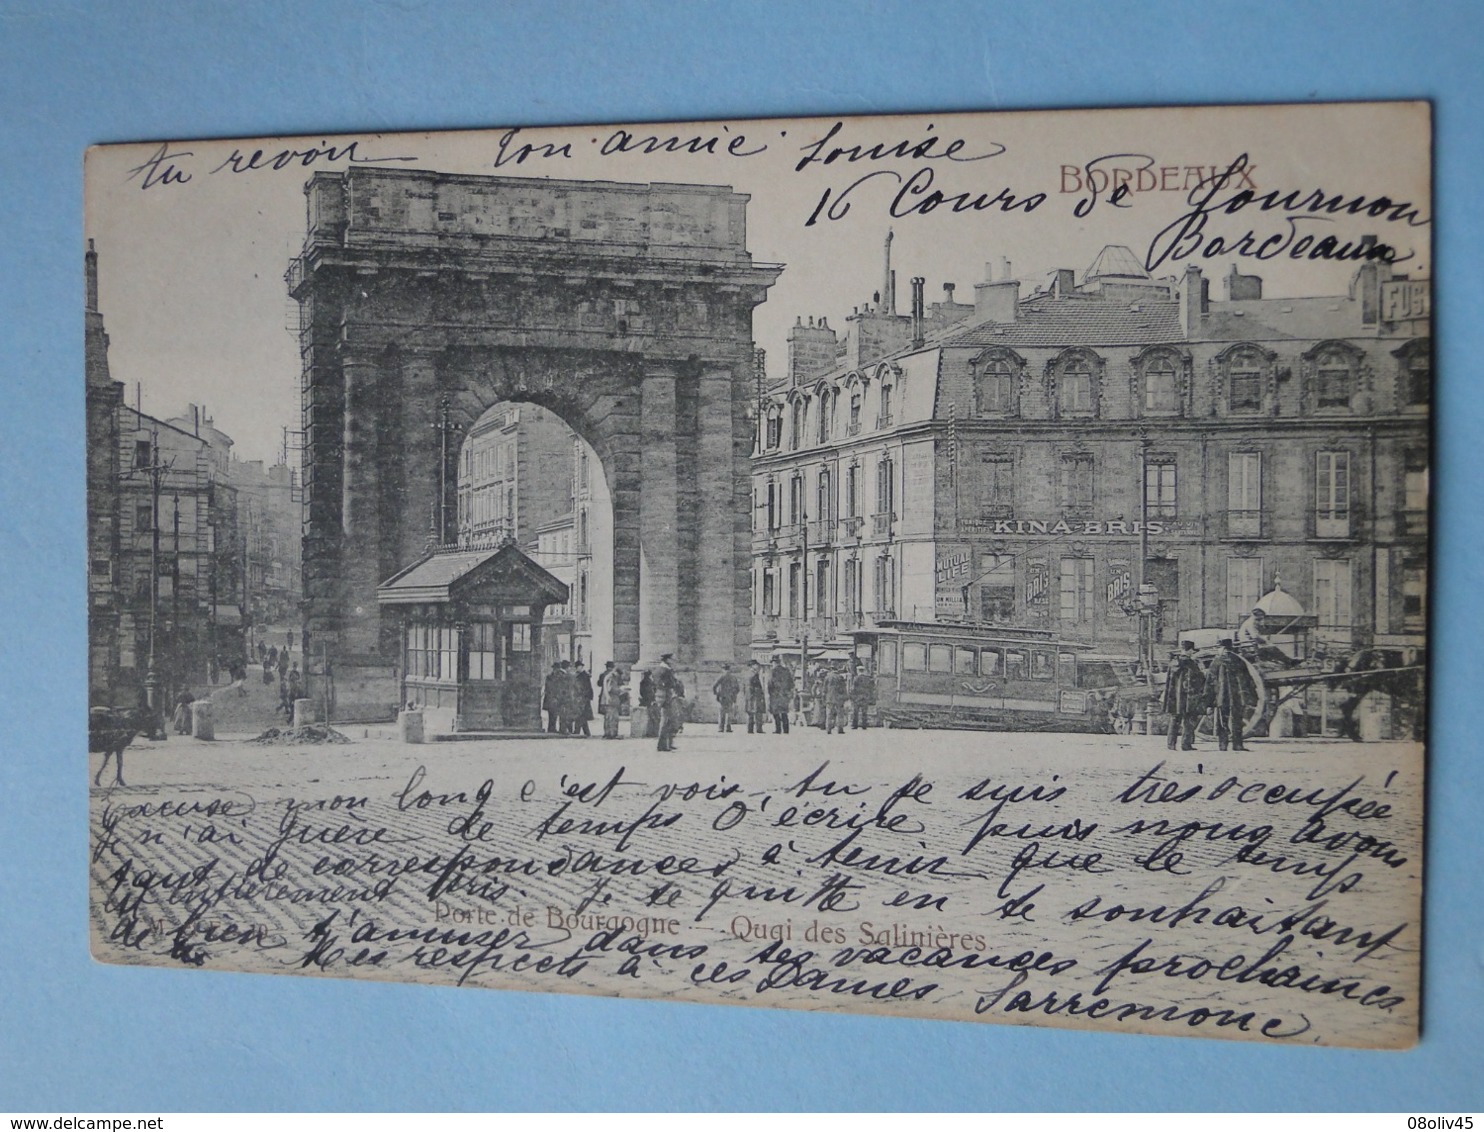 Au revoir Ton amie Louise
BORDEAUX
16 Cours de Tournon
Bordeaux
KINA-BRIS
MUTUAL
LIFE
BRIS
BRIS
Excuse mon long c'est vois, tu je suis très occupée
Je n'ai guère de temps d'écrire puis nous avons
tant de correspondances à tenir que le temps
est entièrement pris. Je te quitte en te souhaitant
Porte de Bourgogne — Quai des Salinières
de bien t'amuser dans tes vacances prochaines
Mes respects à ces Dames Larremone.
delcampe.net
08oliv45